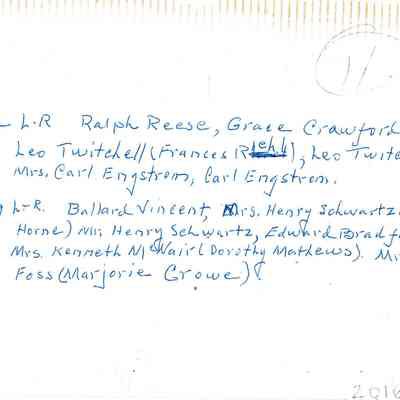 L-R Ralph Reese, Grace Crawford
Leo Twitchell (Frances Riehl), Leo Twitc
Mrs. Carl Engstrom, Carl Engstrom.
L-R. Ballard Vincent, Mrs. Henry Schwartz
Horne) Mr. Henry Schwartz, Edward Bradf
Mrs. Kenneth McNair (Dorothy Mathews). M
Foss (Marjorie Crowe)
2016